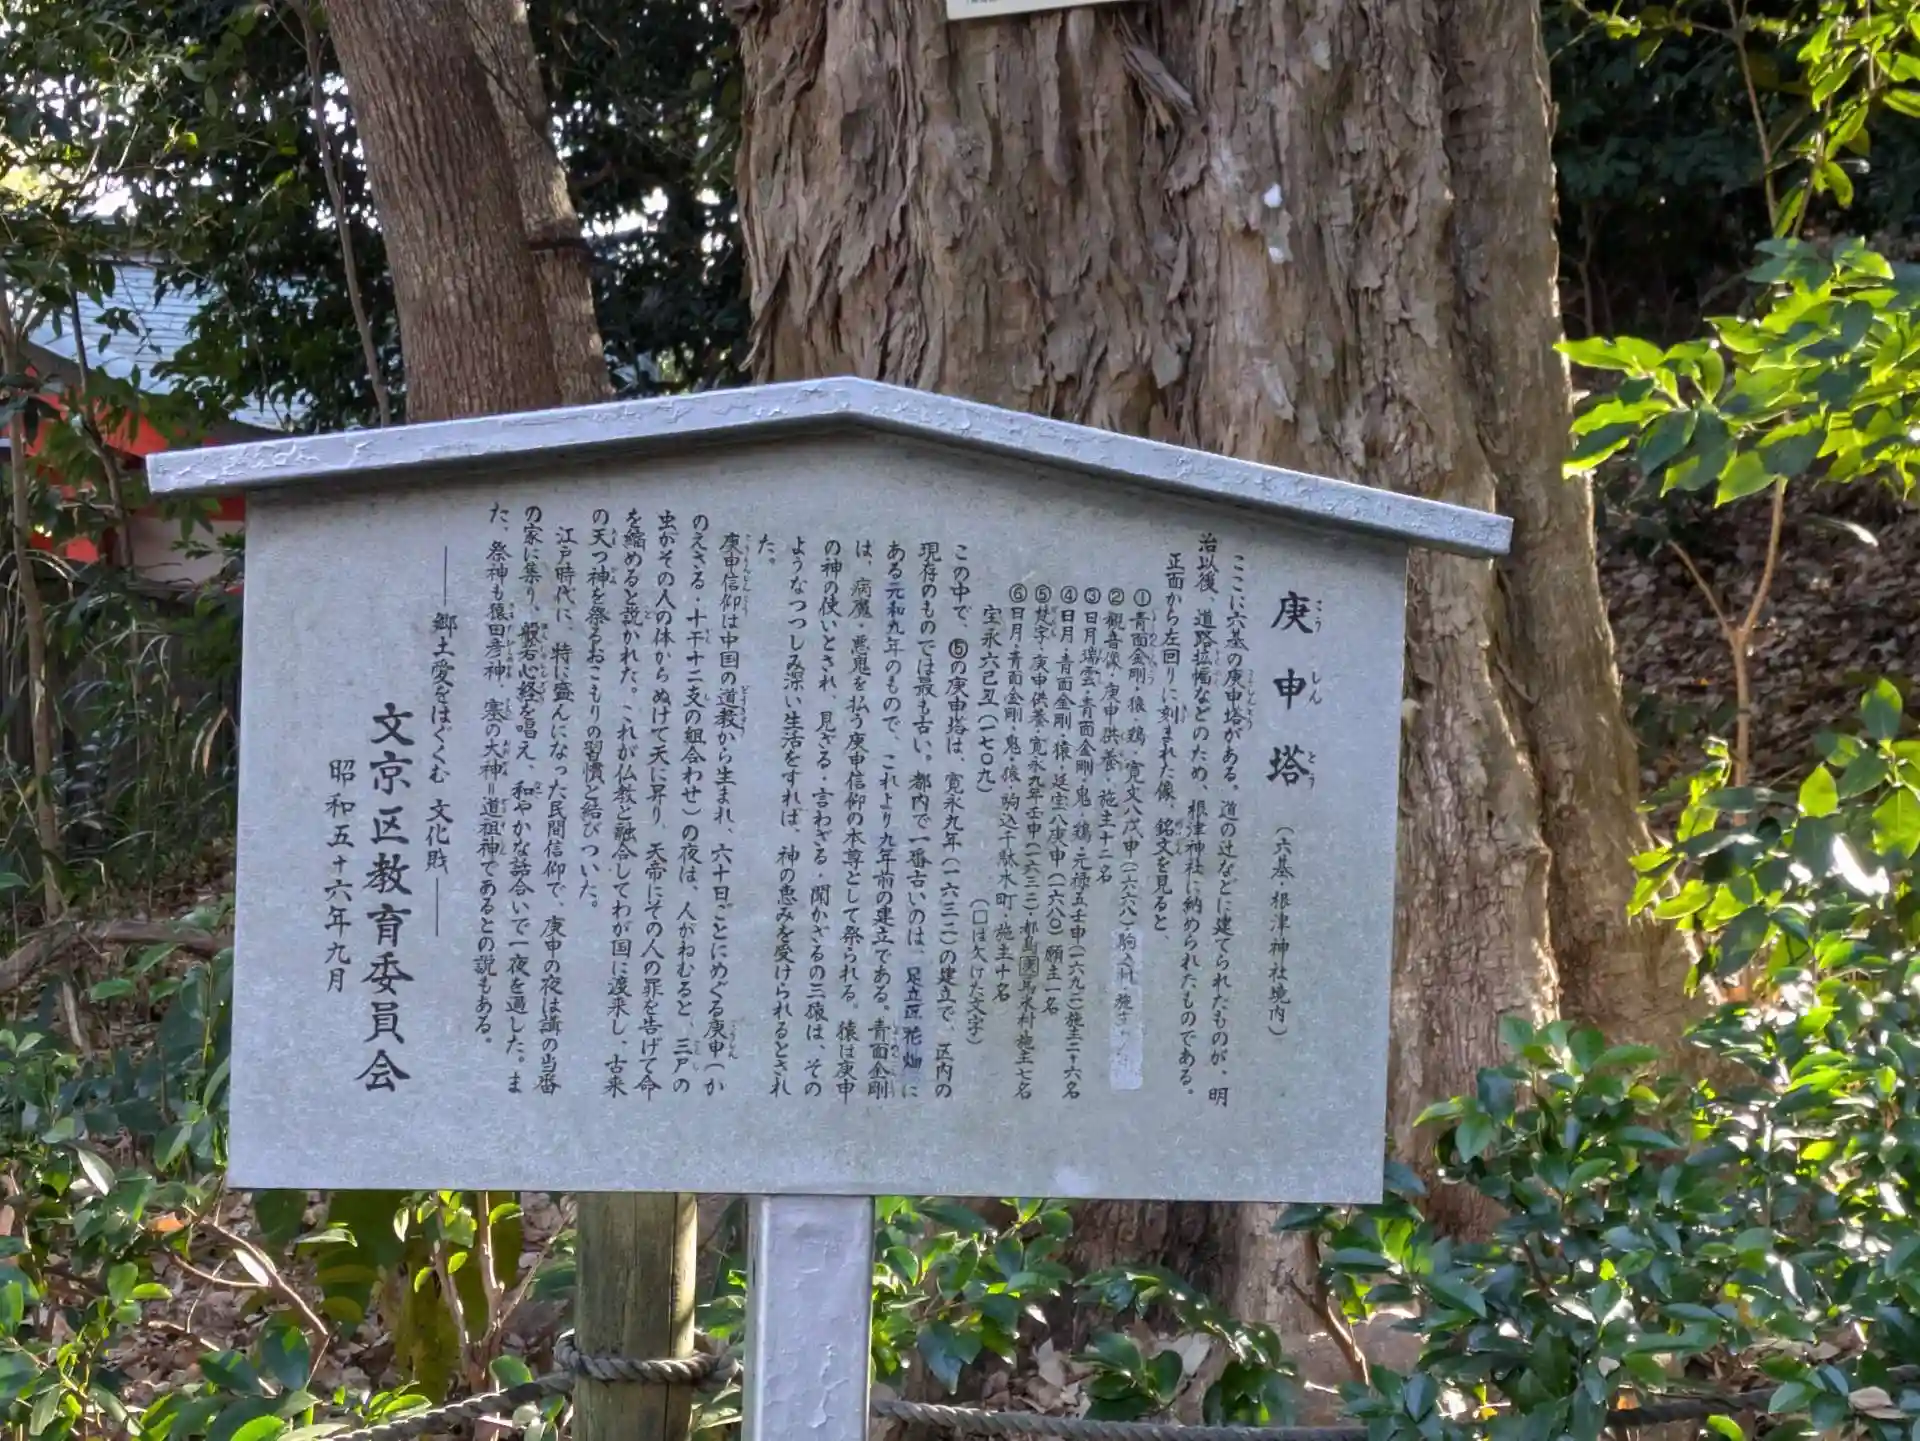 庚申塔（六基・根津神社境内）
ここに六基の庚申塔がある。道の辻などに建てられたものが、明
治以後、道路拡幅などのため、根津神社に納められたものである。
正面から左回りに刻まれた像、銘文を見ると、
①青面金剛・猿・鶏・寛文八戊申（一六六八）駒込村・施主
②観音像・庚申供養・施主十二名
③日月瑞雲・青面金剛・鬼・鶏・元禄五壬申（一六九二）施主二十六名
④日月・青面金剛・猿・延宝八庚申（一六八〇）願主一名
⑤梵字・庚申供養・寛永九年壬申（一六三二）・都島馬米村施主七名
⑥日月・青面金剛・鬼・猿・駒込千駄木町・施主十名
宝永六己丑（一七〇九）
（□は欠けた文字）
この中で、⑤の庚申塔は、寛永九年（一六三二）の建立で、区内の
現存のものでは最も古い。都内で一番古いのは、足立区花畑に
ある元和九年のもので、これより九年前の建立である。青面金剛
は、病魔・悪鬼を払う庚申信仰の本尊として祭られる。猿は庚申
の神の使いとされ、見ざる・言わざる・聞かざるの三猿は、その
ようなつつしみ深い生活をすれば、神の恵みを受けられるとされ
た。
庚申信仰は中国の道教から生まれ、六十日ごとにめぐる庚申（か
のえさる・十干十二支の組合わせ）の夜は、人がねむると、三尸の
虫がその人の体からぬけて天に昇り、天帝にその人の罪を告げて命
を縮めると説かれた。これが仏教と融合してわが国に渡来し、古来
の天つ神を祭るおこもりの習慣と結びついた。
江戸時代に、特に盛んになった民間信仰で、庚申の夜は講の当番
の家に集り、般若心経を唱え、和やかな話合いで一夜を過した。ま
た、祭神も猿田彦神、塞の大神＝道祖神であるとの説もある。
――郷土愛をはぐくむ 文化財――
文京区教育委員会
昭和五十六年九月